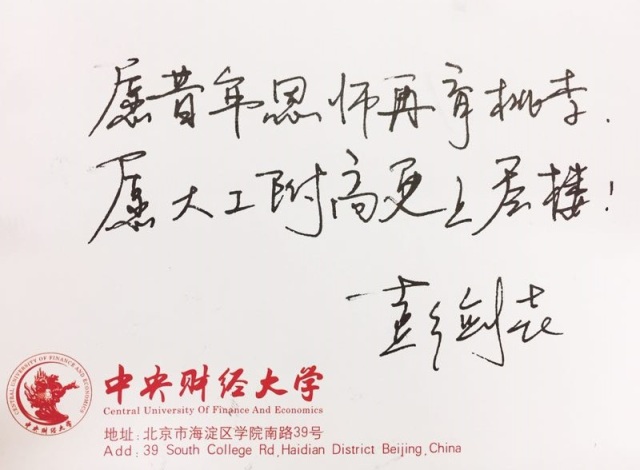 愿昔年恩师再育桃李.
愿大工附高更上层楼!
彭剑
CENTRAL UNIVERSITY OF FINANCE AND ECONOMICS
中央财经大学
中央财经大学
Central University Of Finance And Economics
地址: 北京市海淀区学院南路39号
Add: 39 South College Rd,Haidian District Beijing,China